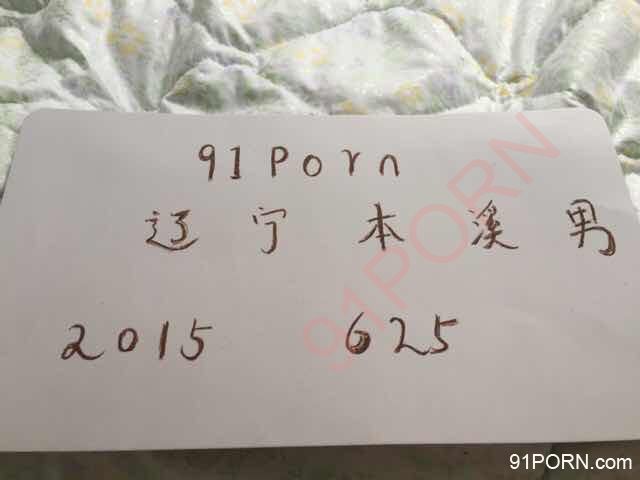 91Porn
辽宁本溪男
2015 625
91PORN
91PORN.com